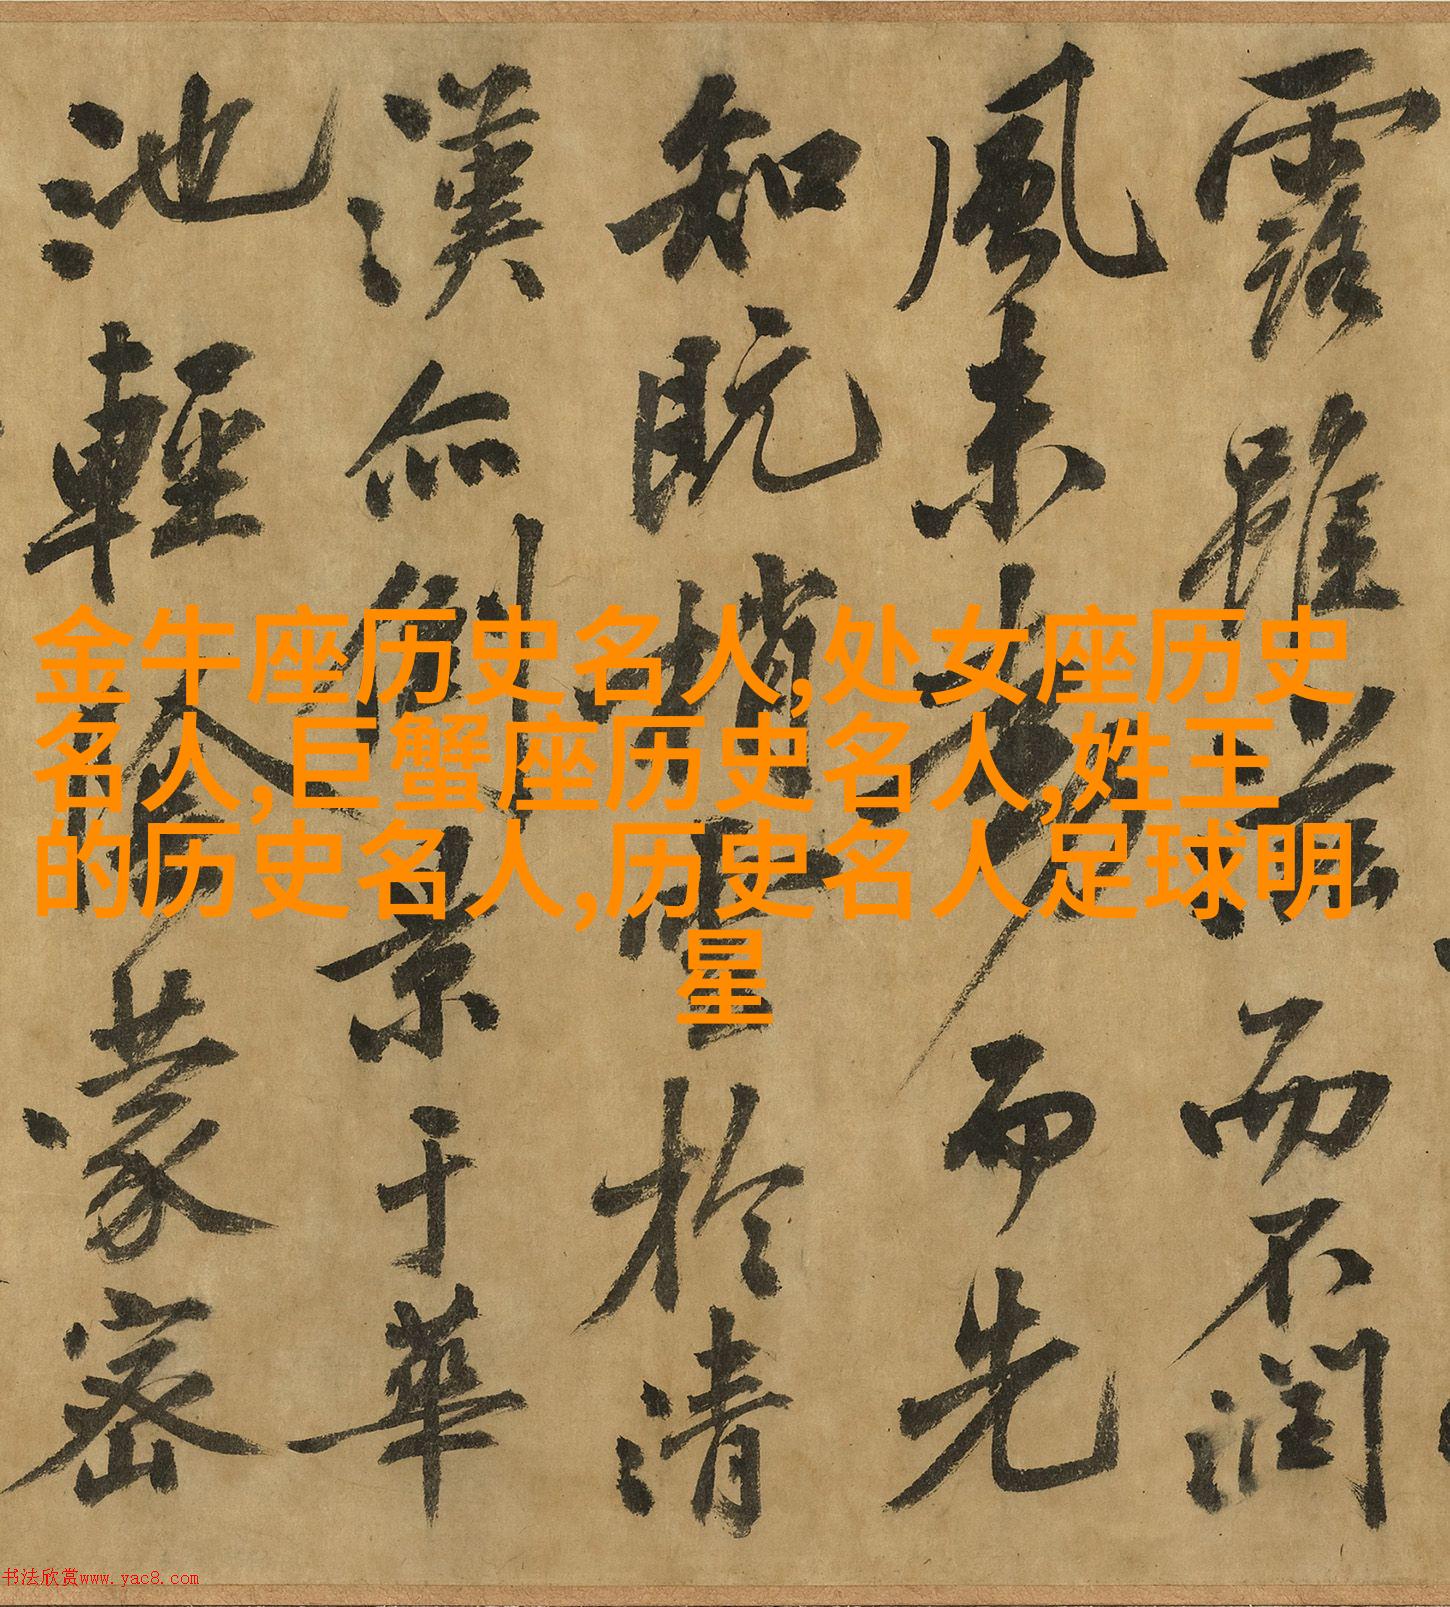 露雖滋而不潤
風未動而先
知既梢雲於清
漢亦倒景于華
池輕陰蒙密
金牛座历史名人,处女座历史
名人,巨蟹座历史名人,姓王
的历史名人,历史名人足球明
星
书法欣赏www.yac8.com